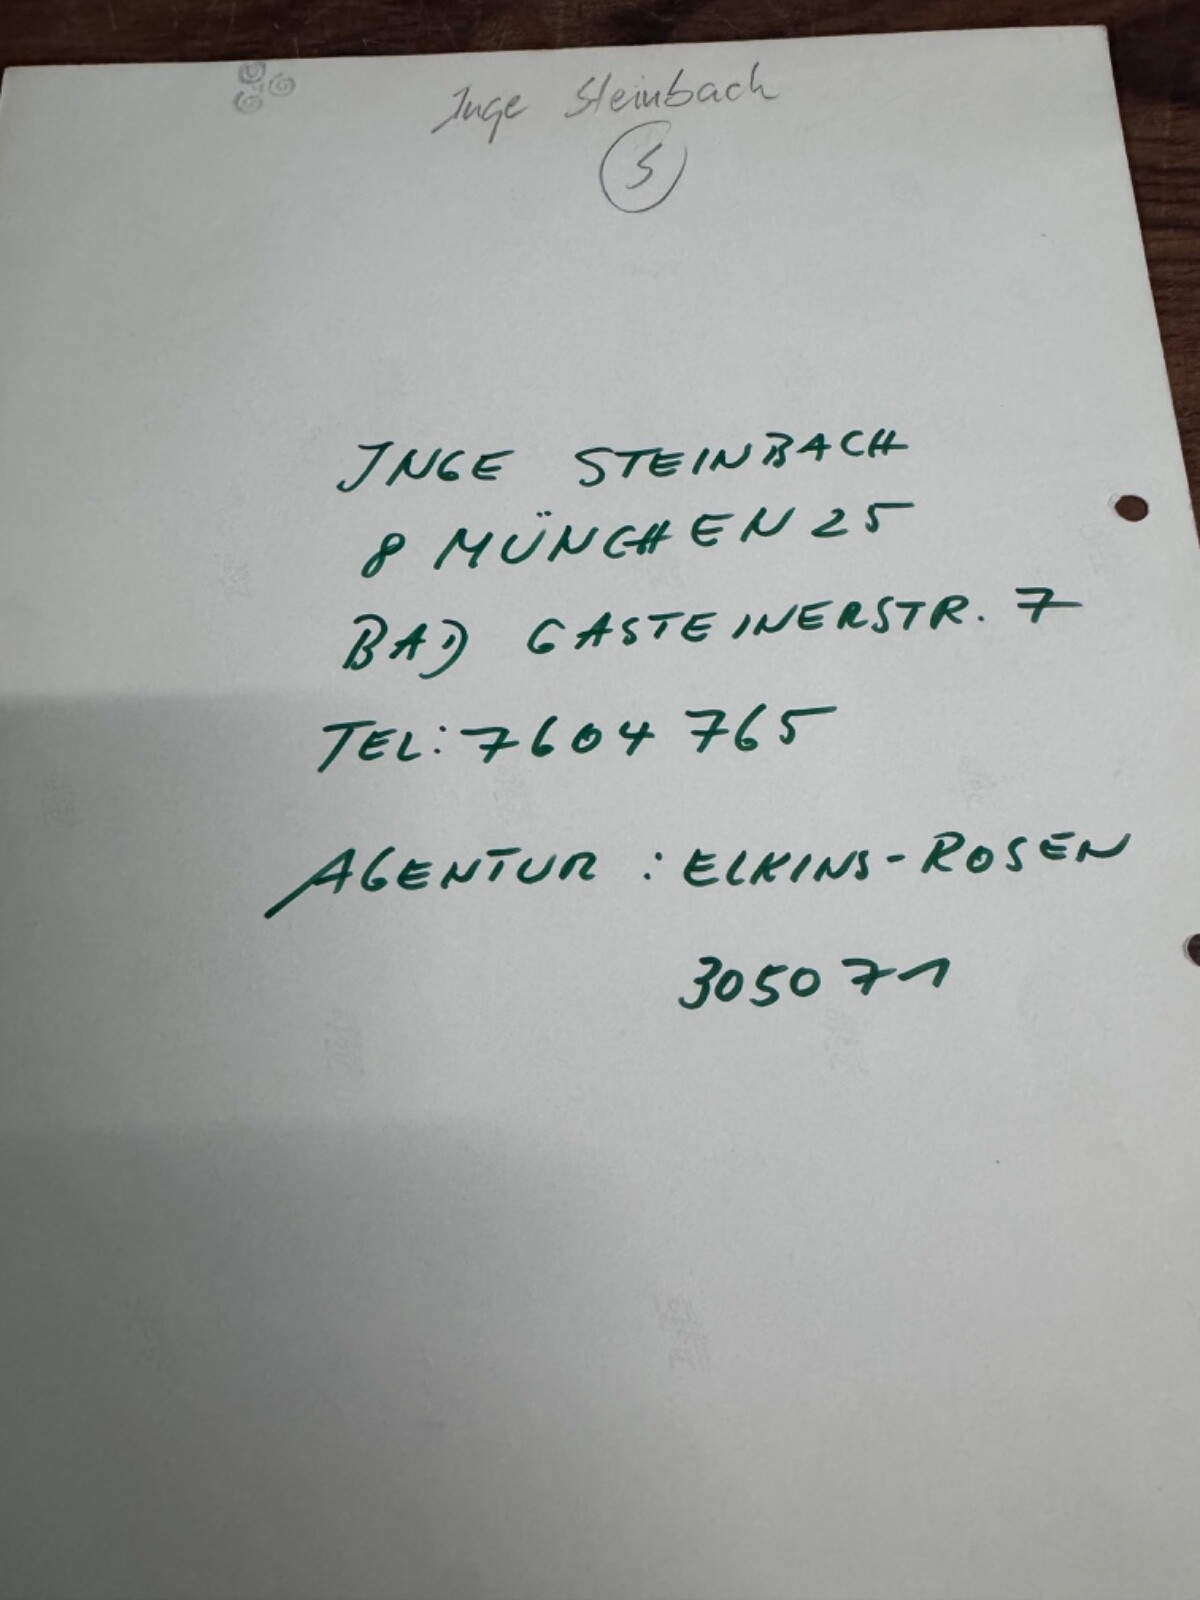 Inge Steinbach
5
INGE STEINBACH
8 MÜNCHEN 25
BAD GASTEINERSTR. 7
TEL: 7604 765
AGENTUR : ELKINS-ROSEN
305071